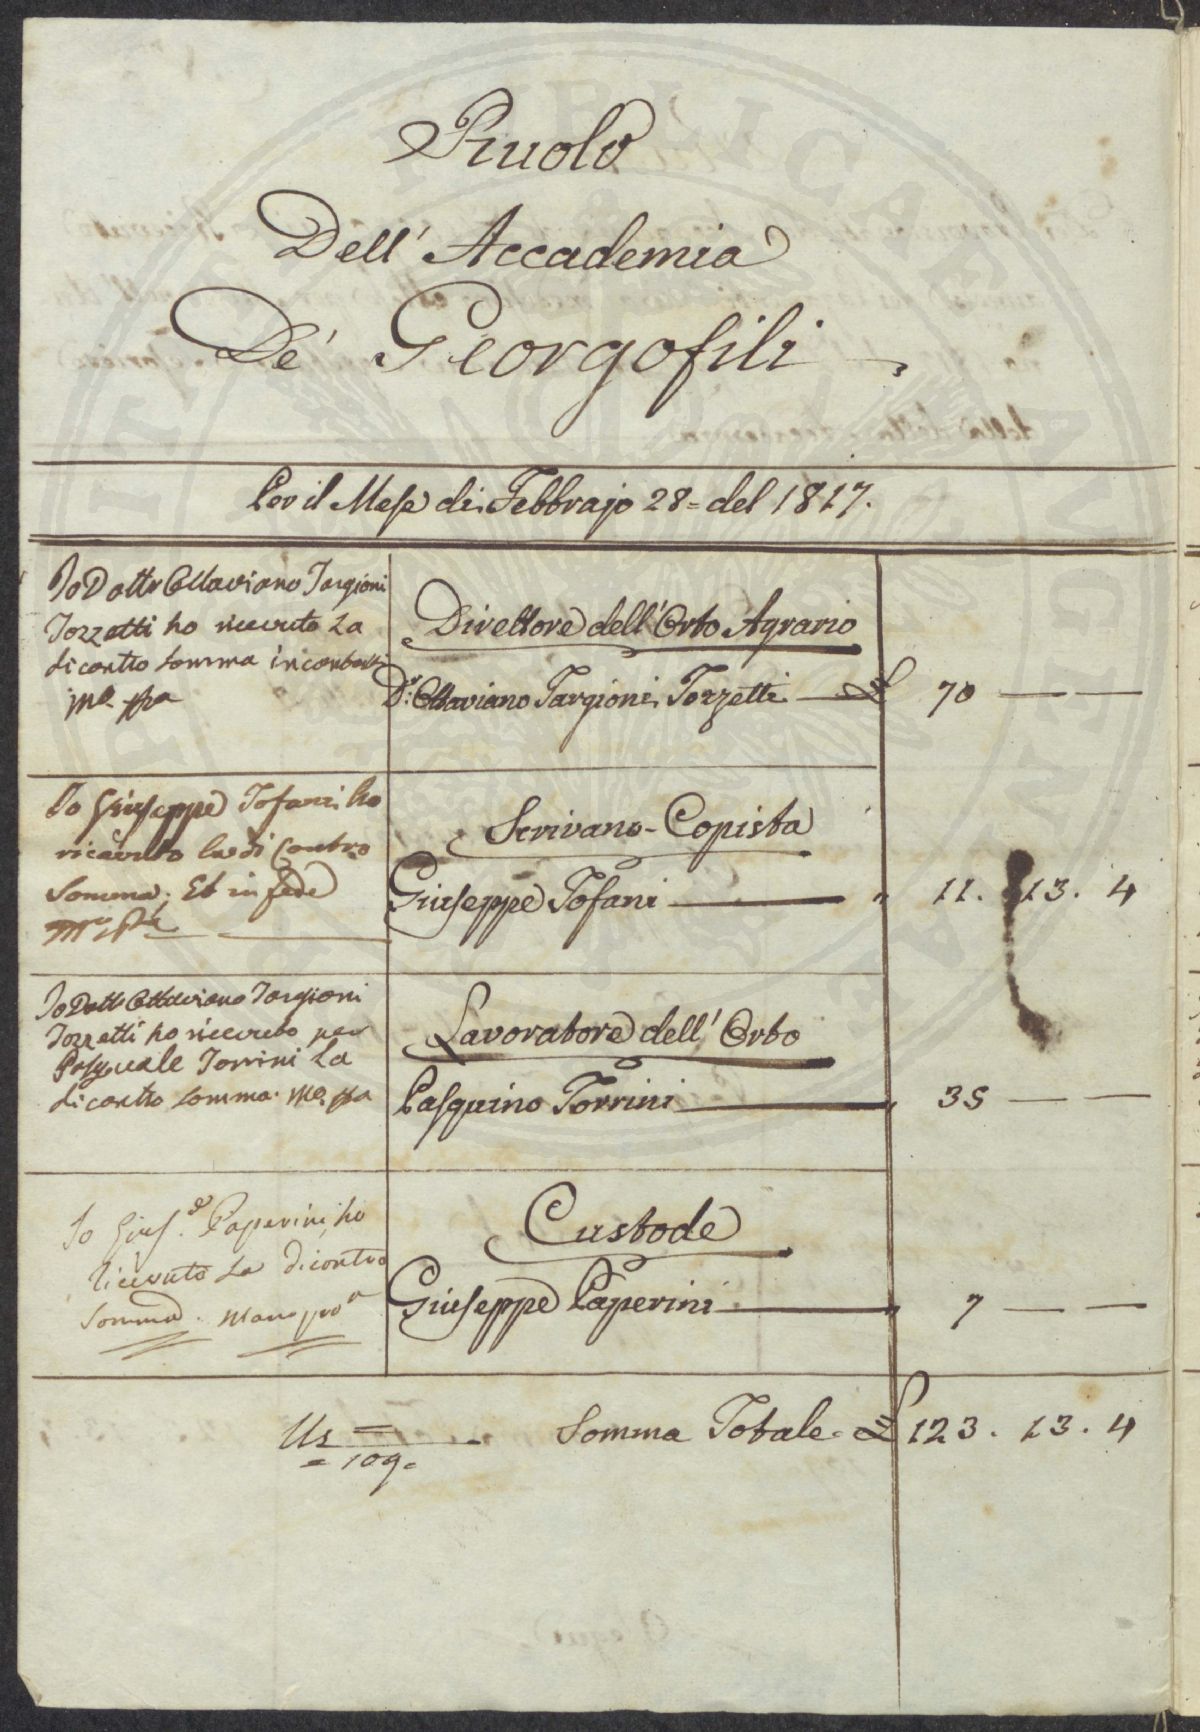 Ruolo
Dell' Accademia
De' Georgofili
Per il Mese di Febbrajo 28= del 1817.
Io Dottr Ottaviano Targioni
Tozzetti ho ricevuto la
di contro somma in contanti
mo. ppa
Direttore dell' Orto Agrario
Dr. Ottaviano Targioni Tozzetti — £ 70 — —
Io Giuseppe Tofani ho
ricevuto la di Contro
Somma; Et in fede
Mo. Pa
Scrivano-Copista
Giuseppe Tofani — " 11. 13. 4
Io Dottr Ottaviano Targioni
Tozzetti ho ricevuto per
Pasquale Torrini la
di contro somma. mo. ppa
Lavoratore dell' Orto
Pasquino Torrini — " 35 — —
Io Gius.e Paperini, ho
ricevuto La di contro
Somma. mano proa
Custode
Giuseppe Paperini — " 7 — —
Somma Totale = £ 123. 13. 4
= 109 =